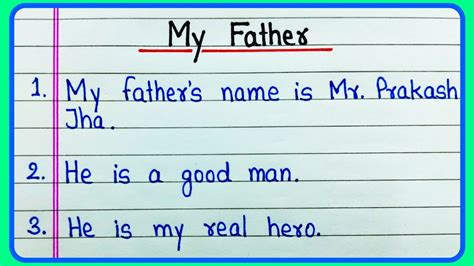 My Father
1. My father's name is Mr. Prakash
Jha.
2. He is a good man.
3. He is my real hero.